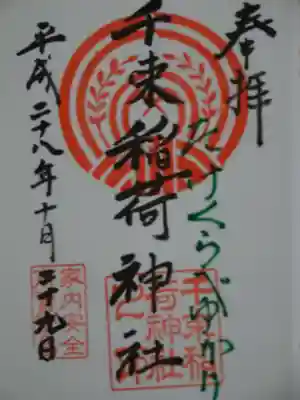 奉拝
たけくらべゆかり
千束稲荷神社
平成二十八年十月二十九日
家内安全